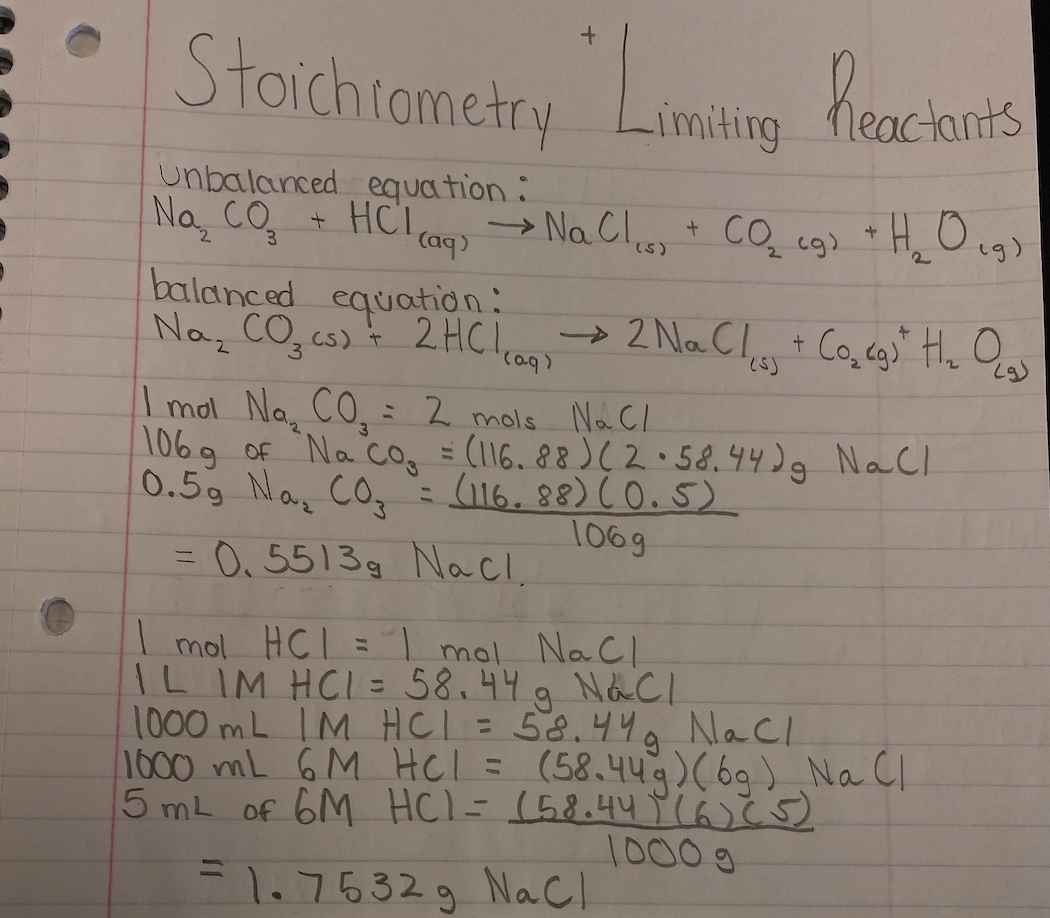 Stoichiometry + Limiting Reactants
unbalanced equation:
Na₂CO₃ + HCl(aq) → NaCl(s) + CO₂(g) + H₂O(g)
balanced equation:
Na₂CO₃(s) + 2HCl(aq) → 2NaCl(s) + Co₂(g) + H₂O(g)
1 mol Na₂CO₃ = 2 mols NaCl
106g of NaCO₃ = (116.88)(2·58.44)g NaCl
0.5g Na₂CO₃ = (116.88)(0.5)
106g
= 0.5513g NaCl.
1 mol HCl = 1 mol NaCl
1L 1M HCl = 58.44g NaCl
1000mL 1M HCl = 58.44g NaCl
1000 mL 6M HCl = (58.44g)(6g) NaCl
5 mL of 6M HCl = (58.44)(6)(5)
1000g
= 1.7532g NaCl